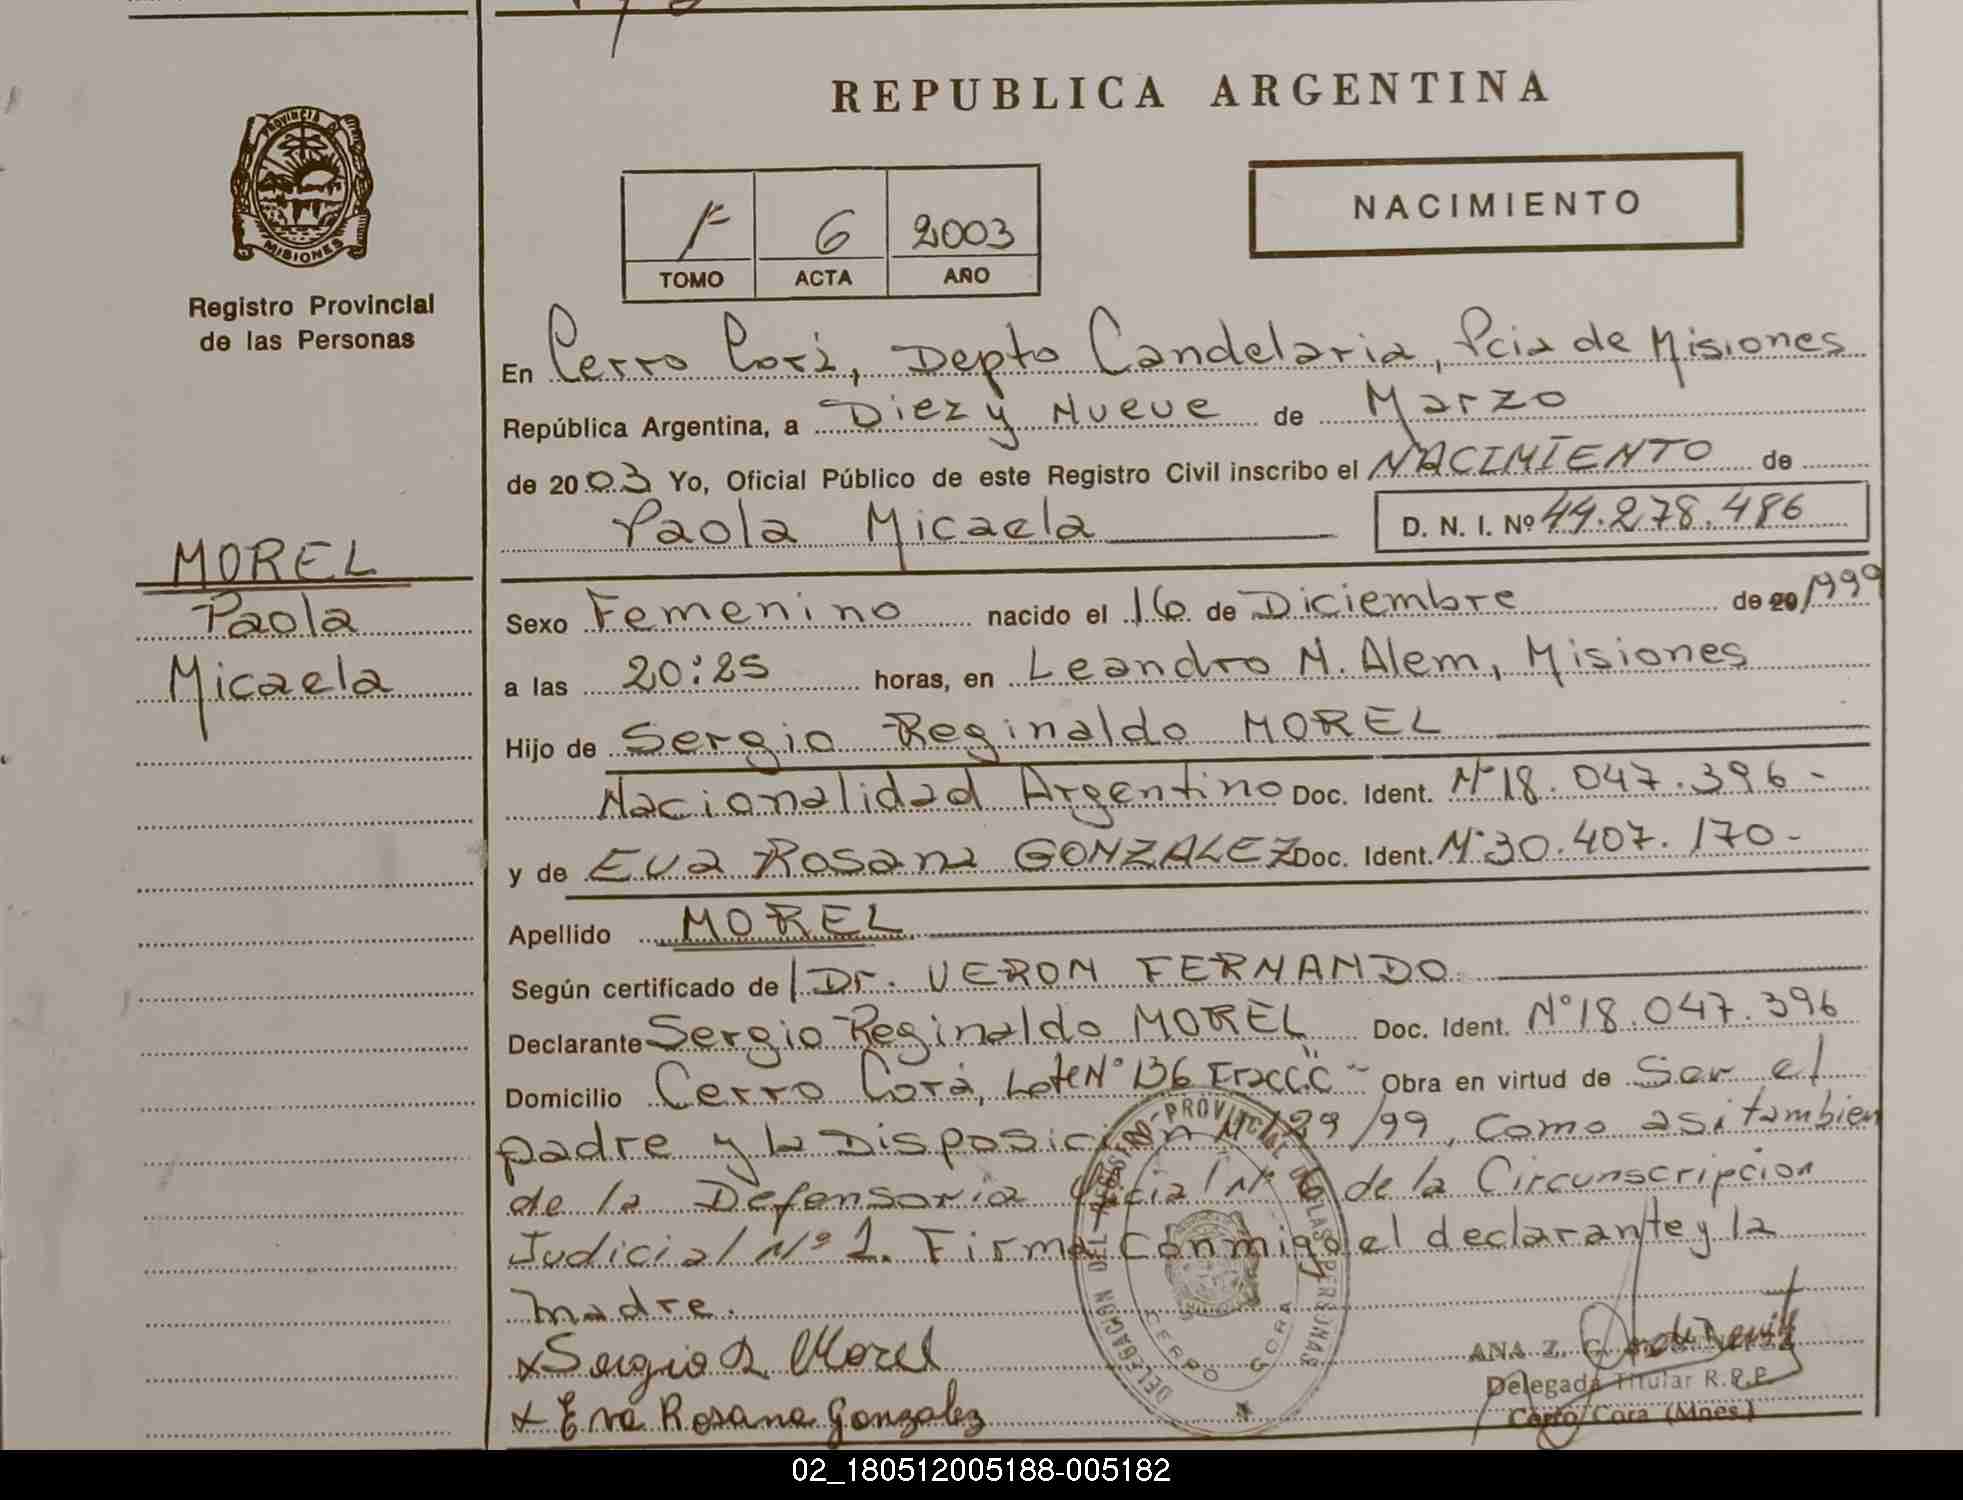 REPUBLICA ARGENTINA
PROVINCIA DE
MISIONES
Registro Provincial
de las Personas
6 2003
TOMO ACTA AÑO
NACIMIENTO
En Cerro Corá, Depto Candelaria, Pcia de Misiones
República Argentina, a Diez y Nueve de Marzo
de 2003 Yo, Oficial Público de este Registro Civil inscribo el NACIMIENTO de
Paola Micaela D. N. I. Nº 44.278.486
MOREL
Paola
Micaela
Sexo Femenino nacido el 16 de Diciembre de 20/1999
a las 20:25 horas, en Leandro N. Alem, Misiones
Hijo de Sergio Reginaldo MOREL
Nacionalidad Argentino Doc. Ident. Nº 18.047.396-
y de Eva Rosana GONZALEZ Doc. Ident. Nº 30.407.170-
Apellido MOREL
Según certificado de Dr. VERON FERNANDO
Declarante Sergio Reginaldo MOREL Doc. Ident. Nº 18.047.396
Domicilio Cerro Corá, Lote Nº 136 Fracc. "C" Obra en virtud de Ser el
padre y la Disposición Nº /99, como asi tambien
de la Defensoria Oficial Nº 6 de la Circunscripcion
Judicial Nº 1. Firma conmigo el declarante y la
madre.
x Sergio R. Morel
x Eva Rosana Gonzalez
DELEGACION DEL REGISTRO PROVINCIAL DE LAS PERSONAS
CERRO CORA
ANA Z.
Delegada Titular R.P.P.
Cerro Cora (Mnes.)
02_180512005188-005182